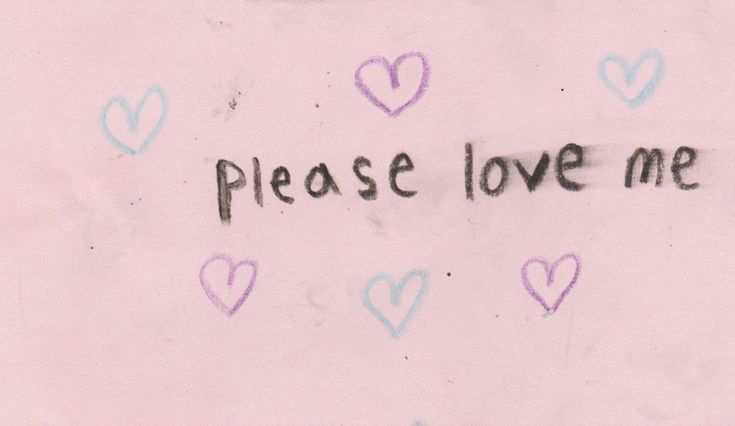 please love me